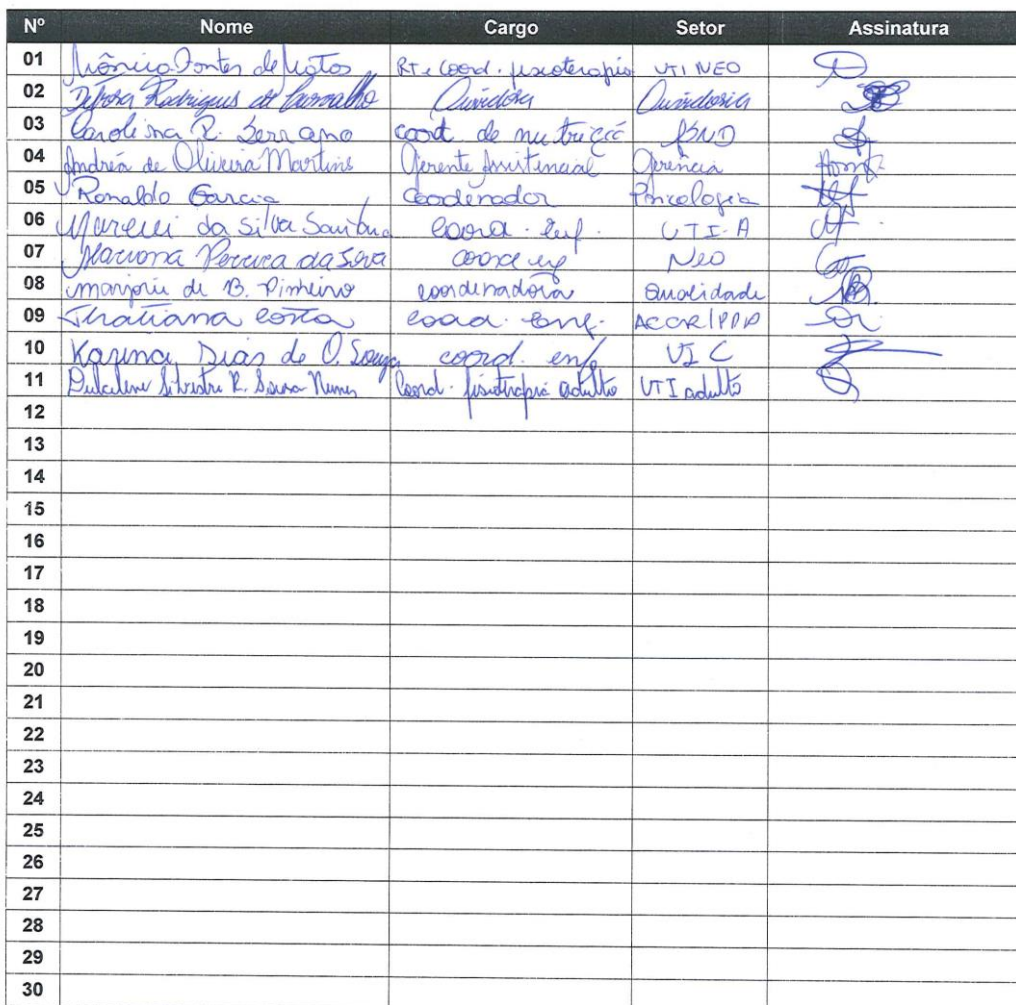 Nº Nome Cargo Setor Assinatura
01 Mônica Fontes de Matos RT e Coord. fisioterapia UTI NEO
02 Débora Rodrigues de Carvalho Ouvidora Ouvidoria
03 Carolina R. Serrano coord. de nutrição SND
04 Andréa de Oliveira Martins Gerente Assistencial Gerência
05 Ronaldo Garcia Coordenador Psicologia
06 da Silva Santana Coord. Enf. UTI-A
07 Mariana Pereira da Silva coord enf Neo
08 Marjorie de B. Pinheiro coordenadora Qualidade
09 Thatiana Costa coord. enf. ACCR/PPP
10 Karina Dias de O. Souza coord. enf.
11 Silvestre R. Sousa Nunes Coord. fisioterapia adulto UTI adulto
12
13
14
15
16
17
18
19
20
21
22
23
24
25
26
27
28
29
30